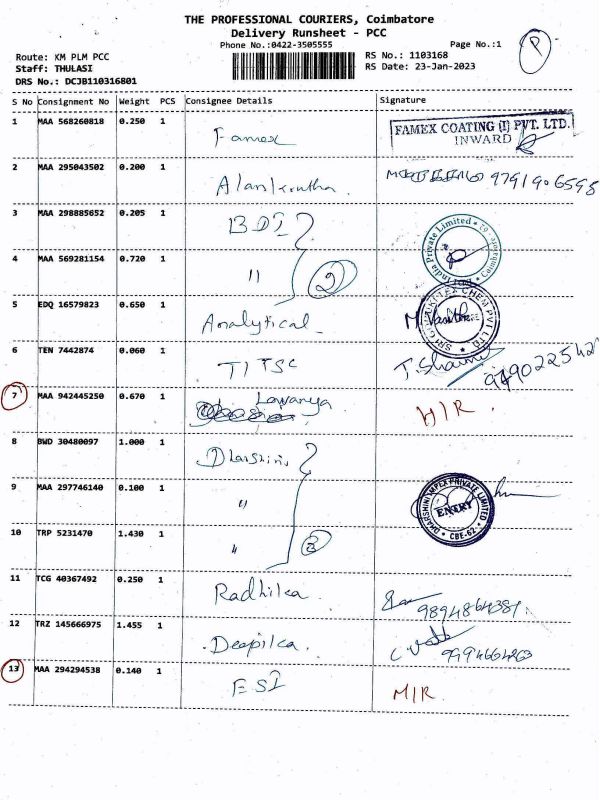 THE PROFESSIONAL COURIERS, Coimbatore
Delivery Runsheet - PCC
Phone No.:0422-3505555
Page No.:1
P
Route: KM PLM PCC
Staff: THULASI
DRS No.: DCJB110316801
RS No.: 1103168
RS Date: 23-Jan-2023
S No Consignment No Weight PCS Consignee Details Signature
1 MAA 568260818 0.250 1 Famex FAMEX COATING (I) PVT. LTD.
INWARD
2 MAA 295043502 0.200 1 Alankrutha. 9791906598
3 MAA 298885652 0.205 1 BDI Private Limited
4 MAA 569281154 0.720 1 " 2
5 EDQ 16579823 0.650 1 Analytical CHEM PVT LTD
6 TEN 7442874 0.060 1 TITSC
7 MAA 942445250 0.670 1 Lawanya H/R.
8 BWD 30480097 1.000 1 Dharshini
9 MAA 297746140 0.100 1 " DHARSHINI IMPEX PRIVATE LIMITED
ENTRY
CBE-62
10 TRP 5231470 1.430 1 " 3
11 TCG 40367492 0.250 1 Radhika 9894864381.
12 TRZ 145666975 1.455 1 Deepika.
13 MAA 294294538 0.140 1 ESI M/R.